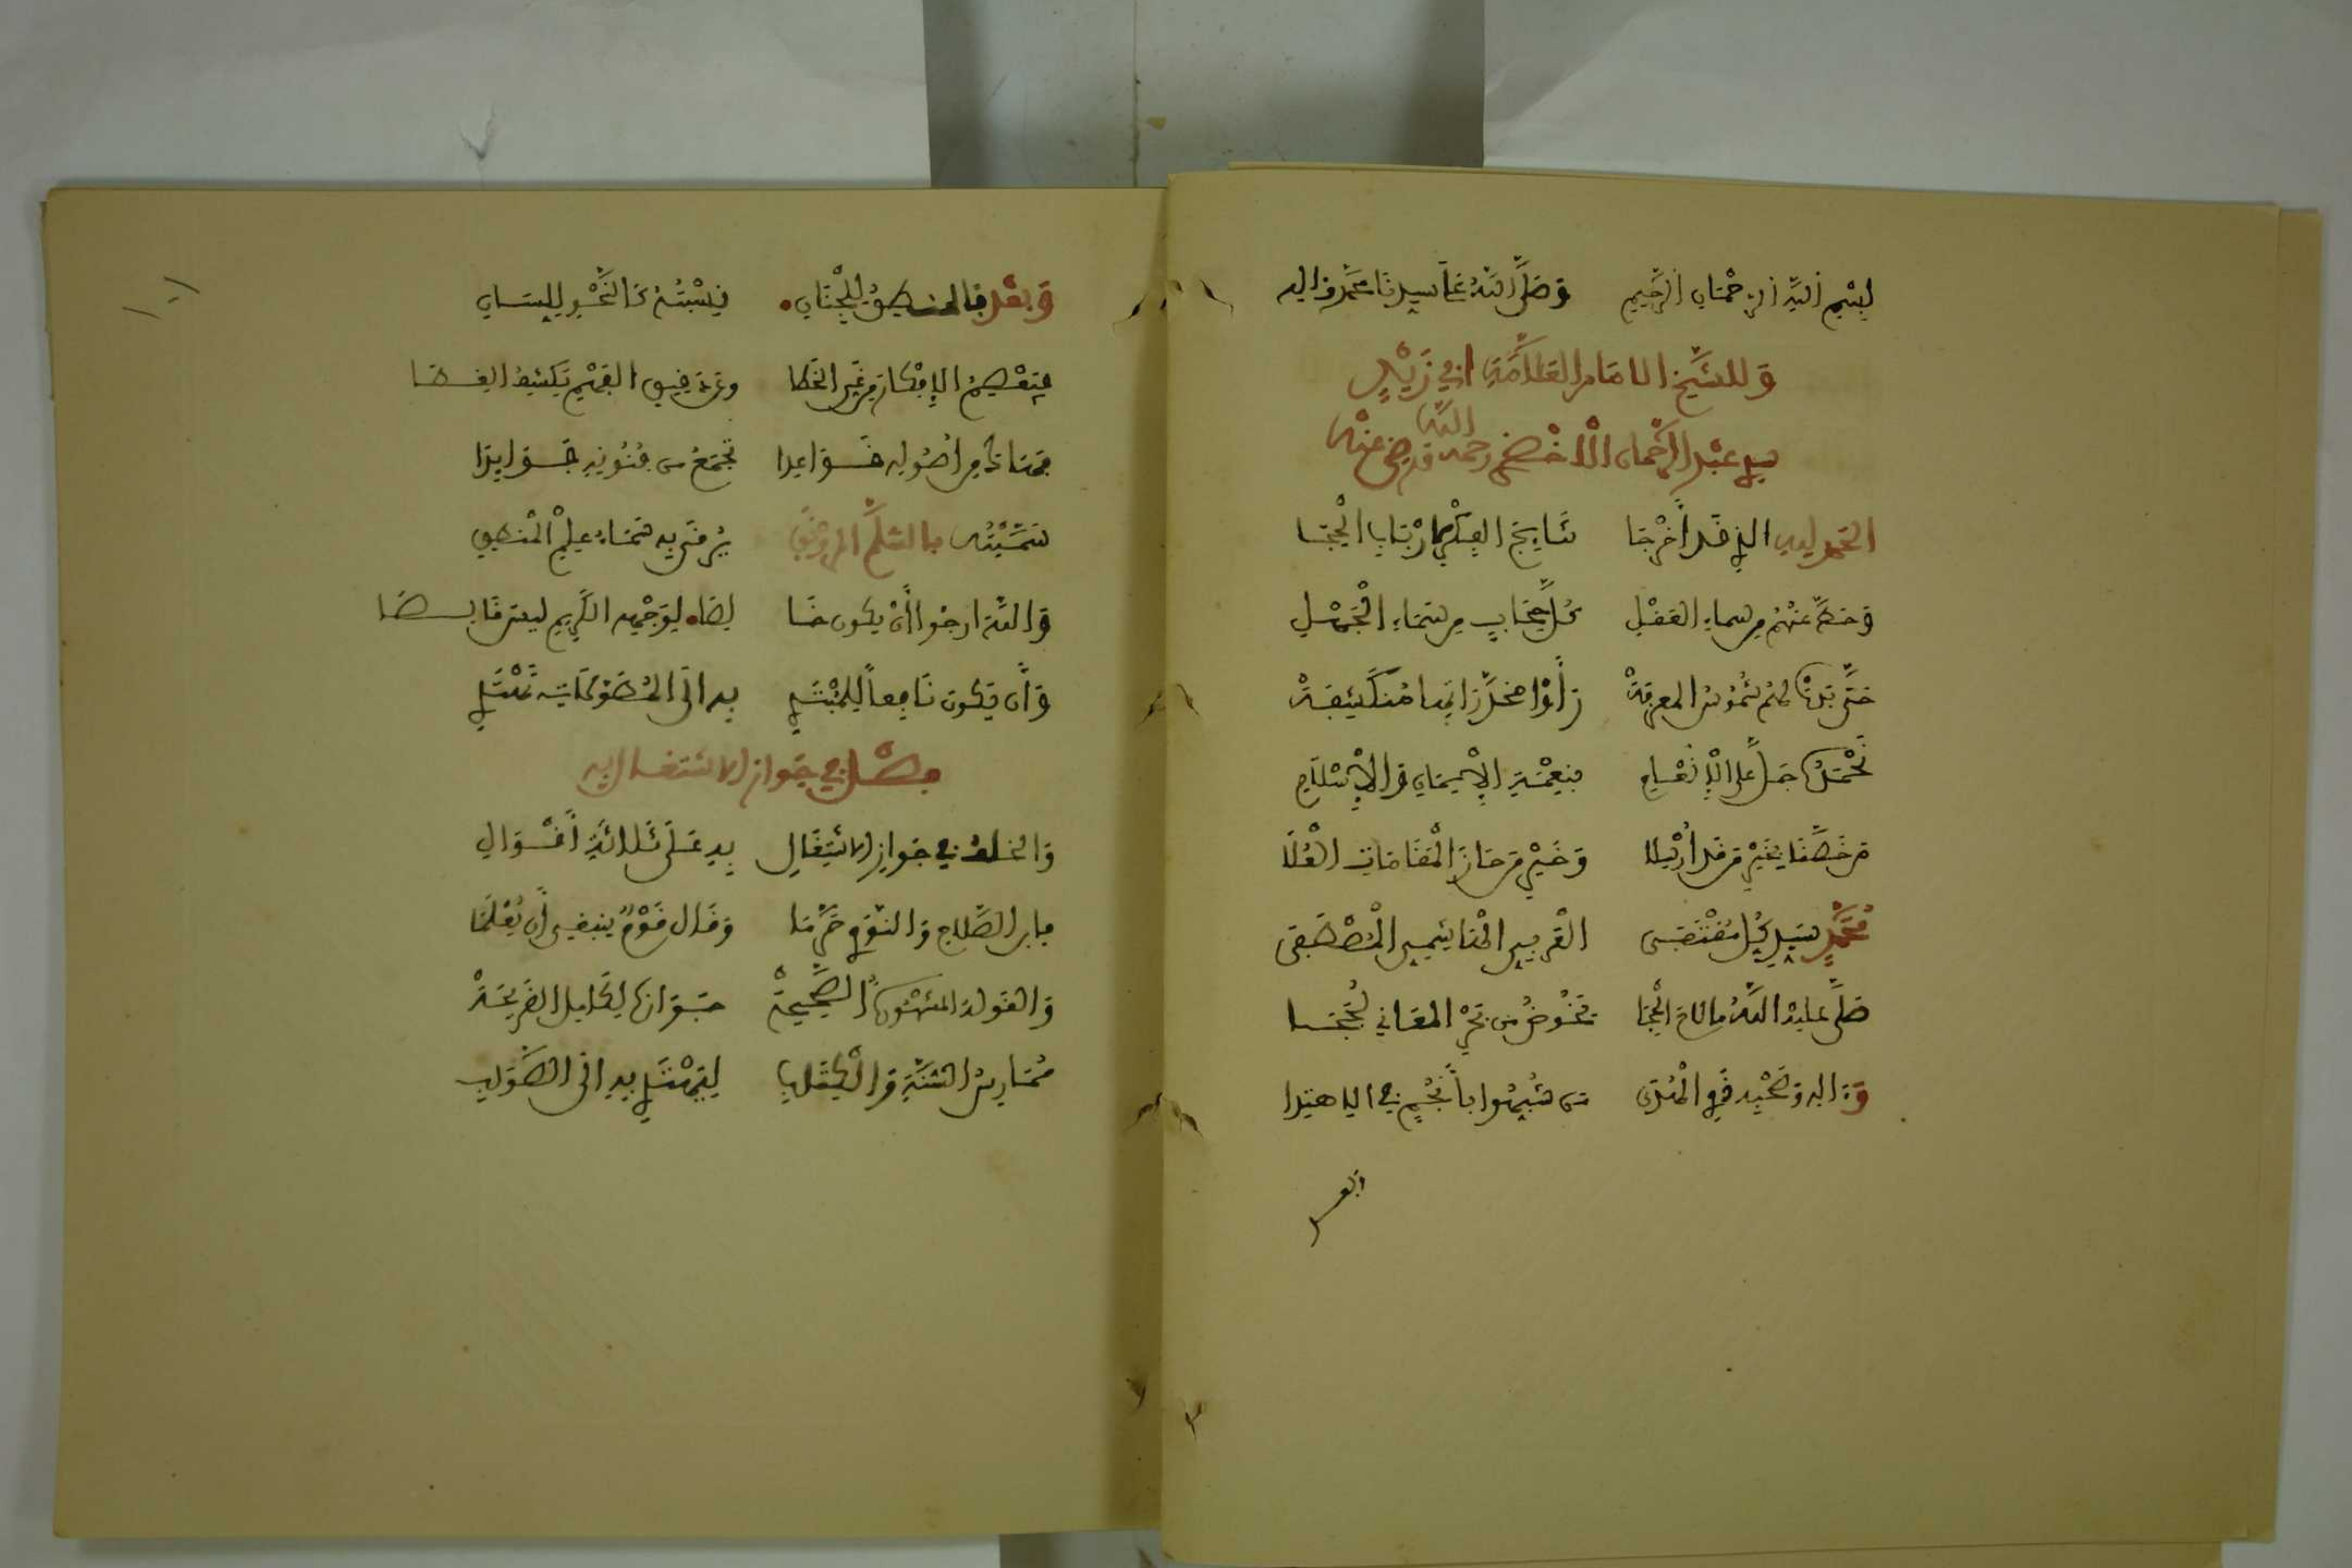 بِسْمِ اللَّهِ الرَّحْمَانِ الرَّحِيمِ وَصَلَّى اللَّهُ عَلَى سَيِّدِنَا مُحَمَّدٍ وَآلِهِ
وَلِلشَّيْخِ الإِمَامِ الْعَلَّامَةِ أَبِي زَيْدٍ
سيدي عَبْدِ الرَّحْمَانِ الْأَخْضَرِي رحمه الله ورضي عنه
الحَمْدُ لِلَّهِ الَّذِي قَدْ أَخْرَجَا نَتَائِجَ الْفِكْرِ لِأَرْبَابِ الْحِجَا
وَحَطَّ عَنْهُمْ مِن سماءِ العَقْلِ كُلَّ حِجَابٍ مِن سَحَابِ الْجَهْلِ
حَتَّى بَدَتْ لَهُمْ شُمُوسُ الْمَعْرِفَةْ رَأَوْا مُخَدَّرَاتِهَا مُنْكَشِفَةْ
نَحْمَدُهُ جَلَّ عَلَى الْإِنْعَامِ بِنِعْمَةِ الْإِيمَانِ وَالْإِسْلَامِ
مَن خَصَّنَا بِخَيْرِ مَن قَدْ أُرْسِلَا وَخَيْرِ مَن حَازَ الْمَقَامَاتِ الْعُلَا
مُحَمَّدٍ سَيِّدِ كُلِّ مُقْتَفَى الْعَرَبِيِّ الْهَاشِمِيِّ الْمُصْطَفَى
صَلَّى عَلَيْهِ اللَّهُ مَا دَامَ الْحِجَا يَخُوضُ مِن بَحْرِ الْمَعَانِي لُجَجَا
وَءَالِهِ وَصَحْبِهِ ذَوِي الْهُدَى مَن شُبِّهُوا بِأَنْجُمٍ فِي الِاهْتِدَا
وَبَعْدُ فَالْمَنْطِقُ لِلْجَنَانِ نِسْبَتُهُ كَالنَّحْوِ لِلِّسَانِ
فَيَعْصِمُ الْأَفْكَارَ مِن غَيِّ الْخَطَا وَعَن دَقِيقِ الْفَهْمِ يَكْشِفُ الْغِطَا
فَهَاكَ مِن أُصُولِهِ قَوَاعِدَا تَجْمَعُ مِن فُنُونِهِ فَوَائِدَا
سَمَّيْتُهُ بِالسُّلَّمِ الْمُرَوْنَقِ يُرْقَى بِهِ سَمَاءُ عِلْمِ الْمَنْطِقِ
وَاللَّهَ أَرْجُو أَنْ يَكُونَ خَالِصَا لِوَجْهِهِ الْكَرِيمِ لَيْسَ قَالِصَا
وَأَن يَكُونَ نَافِعاً لِلْمُبْتَدِي بِهِ إِلَى الْمُطَوَّلَاتِ يَهْتَدِي
فَصْلٌ فِي جَوَازِ الِاشْتِغَالِ بِهِ
وَالْخُلْفُ فِي جَوَازِ الِاشْتِغَالِ بِهِ عَلَى ثَلَاثَةٍ أَقْوَالِ
فَابْنُ الصَّلَاحِ وَالنَّوَوِي حَرَّمَا وَقَالَ قَوْمٌ يَنْبَغِي أَن يُعْلَمَا
وَالْقَوْلَةُ الْمَشْهُورَةُ الصَّحِيحَةْ جَوَازُهُ لِكَامِلِ الْقَرِيحَةْ
مُمَارِسِ السُّنَّةِ وَالْكِتَابِ لِيَهْتَدِي بِهِ إِلَى الصَّوَابِ